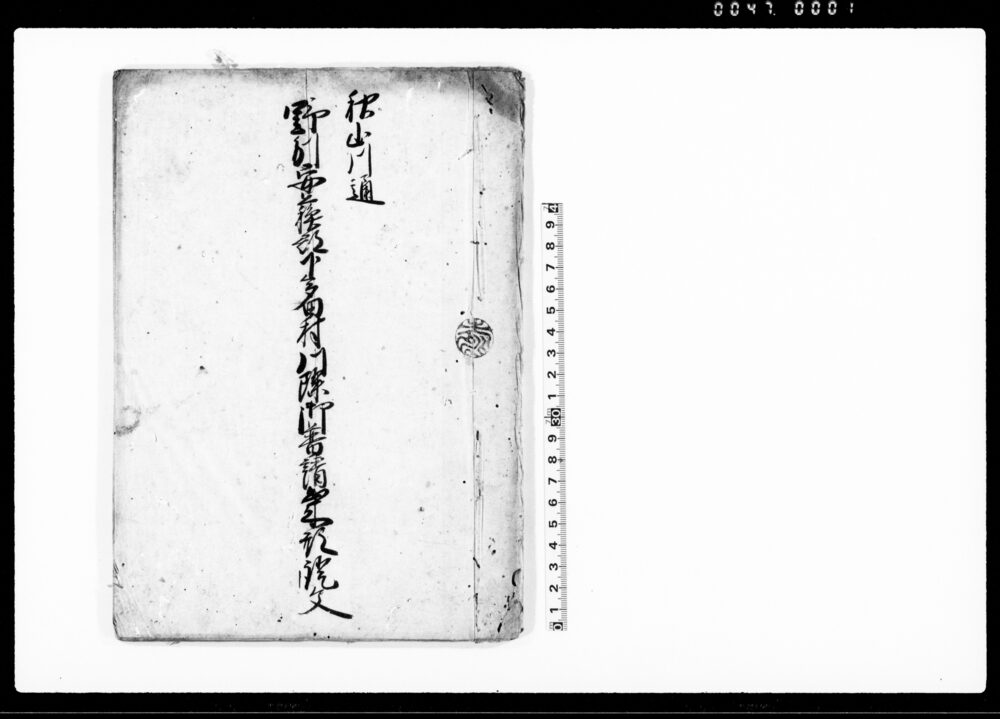 0047. 0001
秋山川通
野州安蘇郡下多田村川除御普請出来形帳
0 1 2 3 4 5 6 7 8 9 30 1 2 3 4 5 6 7 8 9 4